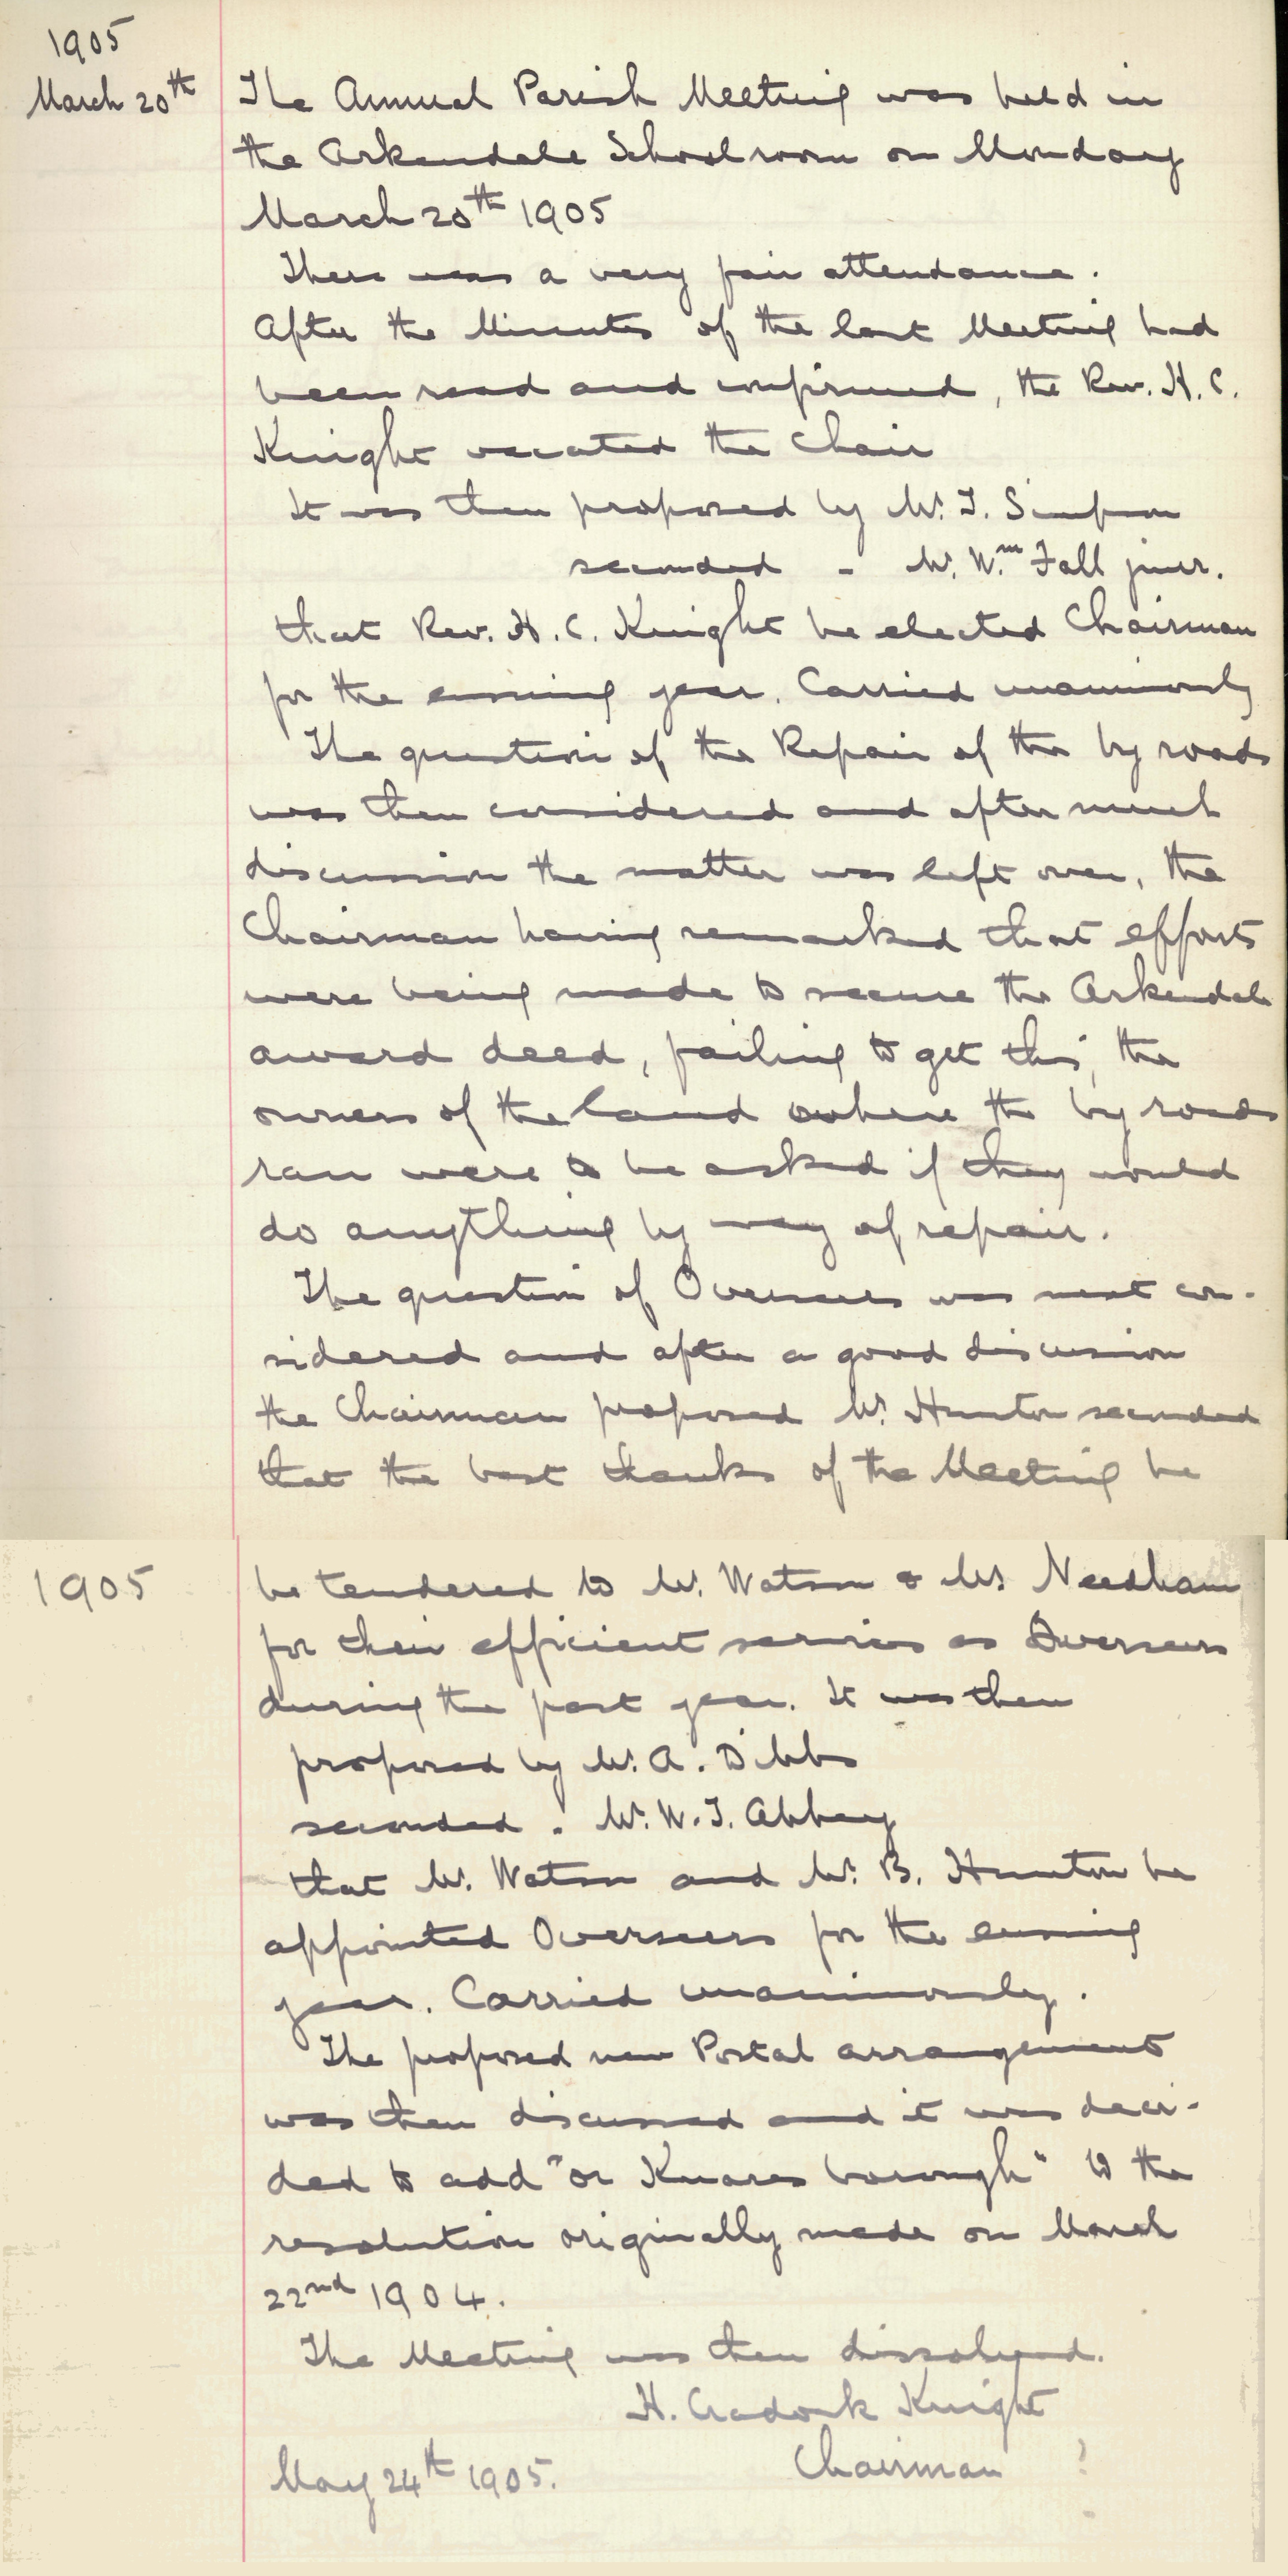 1905
March 20th
The Annual Parish Meeting was held in
the Arkendale Schoolroom on Monday
March 20th 1905
There was a very fair attendance.
After the Minutes of the last Meeting had
been read and confirmed, the Rev. H. C.
Knight vacated the Chair
It was then proposed by Mr. T. Simpson
seconded - Mr. Wm. Fall junr.
that Rev. H. C. Knight be elected Chairman
for the ensuing year. Carried unanimously
The question of the Repair of the by roads
was then considered and after much
discussion the matter was left over, the
Chairman having remarked that efforts
were being made to secure the Arkendale
award deed, failing to get this, the
owners of the land where the by roads
ran were to be asked if they would
do anything by way of repair.
The question of Overseers was next con-
sidered and after a good discussion
the Chairman proposed Mr. Hunton seconded
that the best thanks of the Meeting be
1905
be tendered to Mr. Watson & Mr Needham
for their efficient services as Overseers
during the past year. It was then
proposed by Mr. A. Dibbs
seconded - Mr. W. T. Abbey
that Mr. Watson and Mr. B. Hunton be
appointed Overseers for the ensuing
year. Carried unanimously.
The proposed new Postal arrangements
was then discussed and it was deci-
ded to add "or Knaresborough" to the
resolution originally made on March
22nd 1904.
The Meeting was then dissolved.
H. Cradock Knight
Chairman
May 24th 1905.